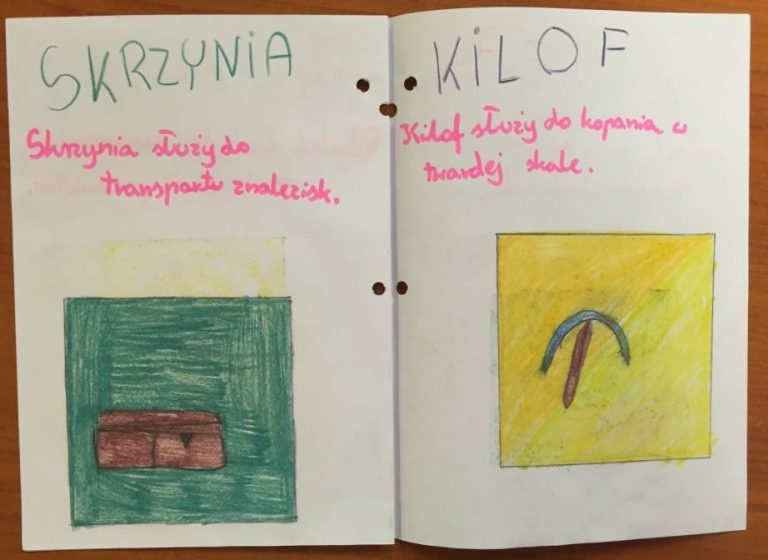 SKRZYNiA
Skrzynia służy do
transportu znalezisk.
KiLOF
Kilof służy do kopania w
twardej skale.